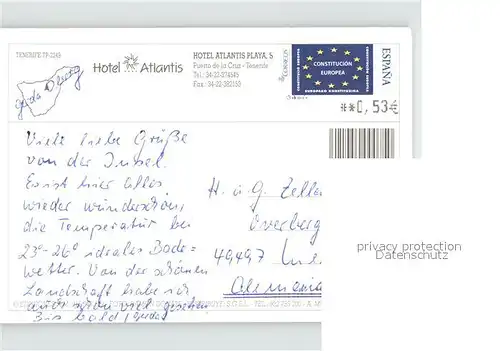 TENERIFE TF-2249
Hotel Atlantis
HOTEL ATLANTIS PLAYA, 5
Puerto de la Cruz - Tenerife
Tel.: 34-22-374545
Fax: 34-22-382153
ESPAÑA
CONSTITUCIÓN
EUROPEA
**0,53€
Viele liebe Grüße
von der Insel.
Es ist hier alles
wieder wunderschön,
die Temperatur bei
23°-26° ideales Bade=
wetter. Von der schönen
Landschaft habe ich
auch schon viel gesehen
Bis bald, Gerda
H. u. G. Zeller
Overberg
49497
Alemania
privacy protection
Datenschutz